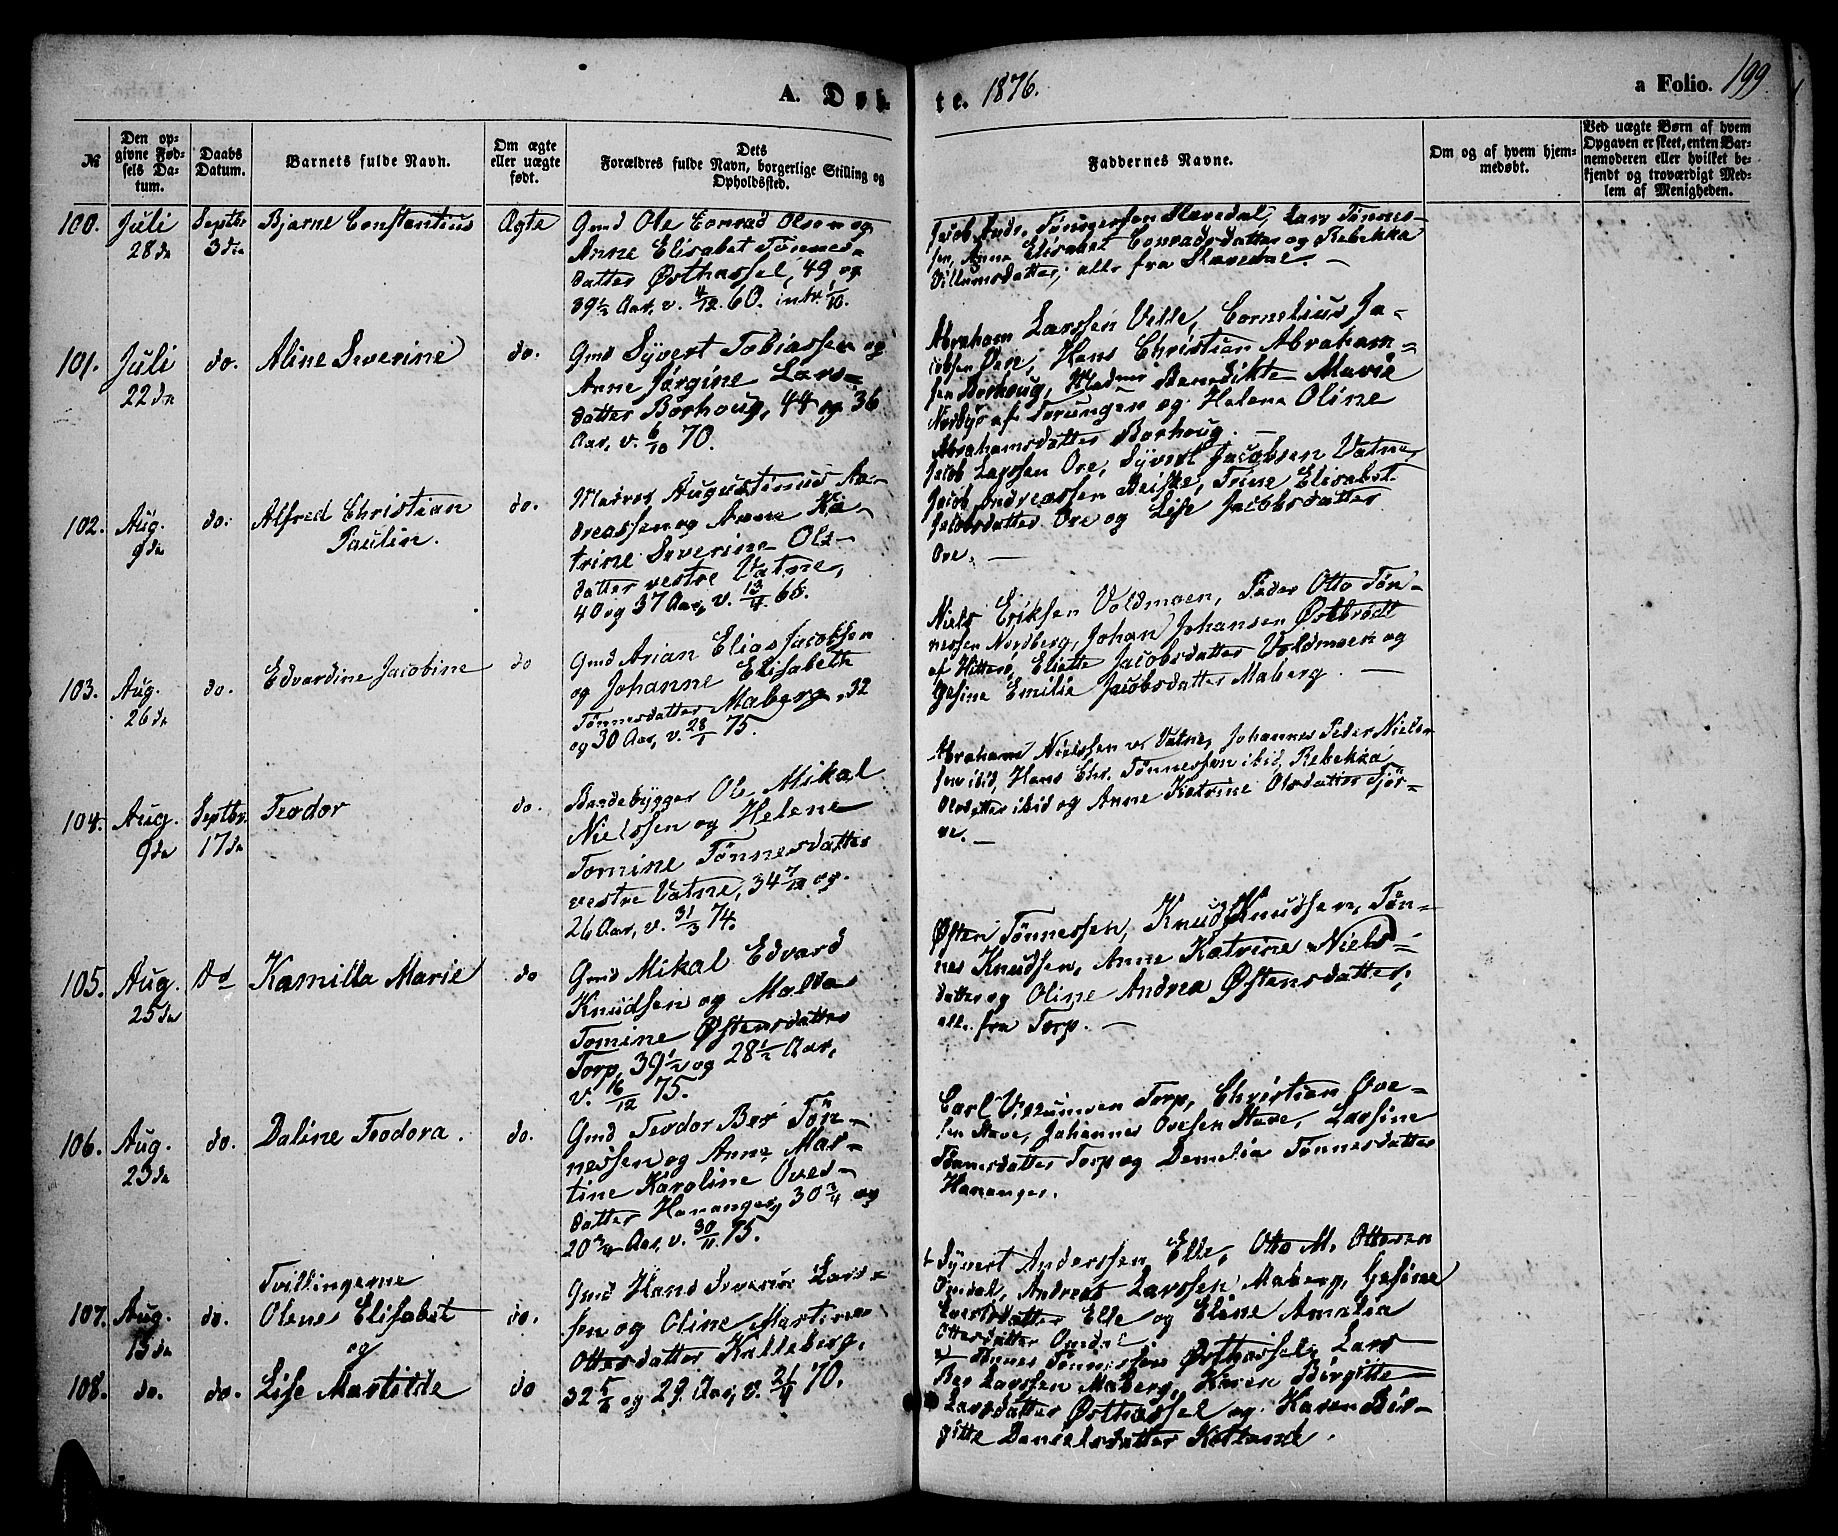 A. Døb-
te. 1876.
a Folio. 199.
№
Den op-
givne Fød-
sels Da-
tum.
Daabs
Datum.
Barnets fulde Navn.
Om ægte
eller uægte
født.
Dets
Forældres fulde Navn, borgerlige Stilling og
Opholdssted.
Faddernes Navne.
Om og af hvem hjem-
medøbt.
Ved uægte Børn af hvem
Opgaven er skeet, enten Bar-
nemoderen eller hvilket be-
kjendt og troværdigt Med-
lem af Menigheden.
100. Juli
28de
Septbr
3die
Bjarne Constantius
Ægte
Gmd Ole Conrad Olsen og
Anne Elisabet Tønnes-
datter Østhassel, 49 og
39½ Aar, v. 4/12 60. intr. 1/10.
Jacob Andr. Tønnessen Slævedal, Lars Tønnes-
sen, Anna Elisabet Conradsdatter og Rebekka
Villumsdatter, alle fra Slævedal. —
101. Juli
22de
do.
Aline Severine
do.
Gmd Syvert Tobiassen og
Anne Jørgine Lars-
datter Borhoug, 44 og 36
Aar, v. 6/10 70.
Abraham Larssen Velle, Cornelius Ja-
cobsen Øre, Hans Christian Abraham-
sen Borhoug, Benedikte Marie
Nordbys af Torungen og Helene Oline
Abrahamsdatter Borhoug. —
102. Aug.
9de
do.
Alfred Christian
Paulin.
do.
Matros Augustinus An-
dreassen og Anne Ka-
trine Severine Ols-
datter vestre Vatne,
40 og 37 Aar, v. 13/4 68.
Jacob Larssen Ore, Syvert Jacobsen Vatne,
Jacob Andreassen Beiske, Trine Elisabet
Jacobsdatter Ore og Lise Jacobsdatter
Ore. —
103. Aug.
26de
do.
Edvardine Jacobine
do
Gmd Arian Elias Jacobsen
og Johanne Elisabeth
Tønnesdatter Maberg, 32
og 30 Aar, v. 28/1 75.
Niels Eriksen Voldmoen, Peder Otto Tøn-
nessen Nordberg, Johan Johansen Østbrødt
af Hitterø, Eliette Jacobsdatter Voldmoen og
Gesine Emilie Jacobsdatter Maberg. —
104. Aug.
9de
Septbr.
17de
Teodor
do.
Baadebygger Ole Mikal
Nielssen og Helene
Tomine Tønnesdatter
vestre Vatne, 34 7/12 og
26 Aar, v. 31/3 74.
Abraham Nielssen v. Vatne, Johannes Peder Niels-
sen ibid, Hans Chr. Tønnessen ibid, Rebekka
Olsdatter ibid og Anne Katrine Olsdatter Tjør-
ve. —
105. Aug.
25de
do
Kamilla Marie
do
Gmd Mikal Edvard
Knudsen og Malda
Tomine Østensdatter
Torp, 39½ og 28½ Aar,
v. 16/12 75.
Østen Tønnessen, Knud Knudsen, Tøn-
nes Knudsen, Anne Katrine Niels-
datter og Oline Andrea Østensdatter,
alle fra Torp. —
106. Aug.
23de
do.
Daline Teodora.
do.
Gmd Teodor Ber Tøn-
nessen og Anne Mar-
tine Karoline Oves-
datter Hananger, 30¾ og
20¾ Aar, v. 30/11 75.
Carl Villumsen Torp, Christian Ove-
sen Stave, Johannes Ovesen Stave, Larsine
Tønnesdatter Torp og Demelia Tønnesdatter
Hananger.
Tvillingerne
107. Aug.
13de
do.
Olene Elisabet
og
do.
Gmd Hans Severin Lars-
sen og Oline Martine
Ottersdatter Kalleberg,
Syvert Anderssen Elle, Otto M. Ottersen
Omdal, Andreas Larssen Maberg, Gesine
Evertsdatter Elle og Eline Amalia
Ottersdatter Omdal
108. do.
do.
Lise Martilde
do
32 5/6 og 29 Aar, v. 21/4 70.
Hannes Tønnessen Østhassel, Lars
Ber Larssen Maberg, Karen Birgitte
Larsdatter Østhassel og Karen Bir-
gitte Danielsdatter Ketland.